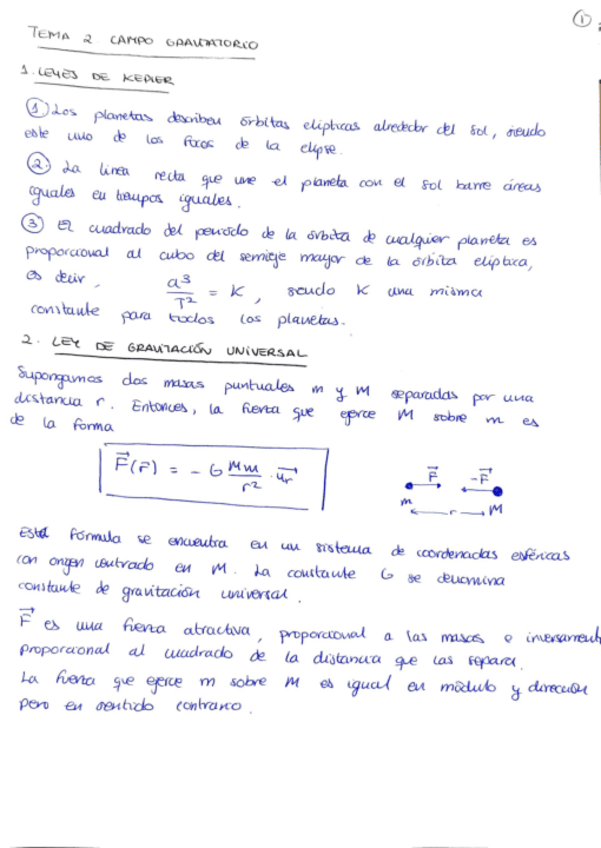 ①
TEMA 2 CAMPO GRAVITATORIO
1. LEYES DE KEPLER
① Los planetas describen órbitas elípticas alrededor del Sol, siendo
este uno de los focos de la elipse.
② La línea recta que une el planeta con el Sol barre áreas
iguales en tiempos iguales.
③ El cuadrado del periodo de la órbita de cualquier planeta es
proporcional al cubo del semieje mayor de la órbita elíptica,
es decir, a³/T² = K, siendo K una misma
constante para todos los planetas.
2. LEY DE GRAVITACIÓN UNIVERSAL
Supongamos dos masas puntuales m y M separadas por una
distancia r. Entonces, la fuerza que ejerce M sobre m es
de la forma
F⃗(r⃗) = - G Mm/r² · u⃗r
F⃗ -F⃗
m r M
Esta fórmula se encuentra en un sistema de coordenadas esféricas
con origen centrado en M. La constante G se denomina
constante de gravitación universal.
F⃗ es una fuerza atractiva, proporcional a las masas e inversament
proporcional al cuadrado de la distancia que las separa.
La fuerza que ejerce m sobre M es igual en módulo y dirección
pero en sentido contrario.